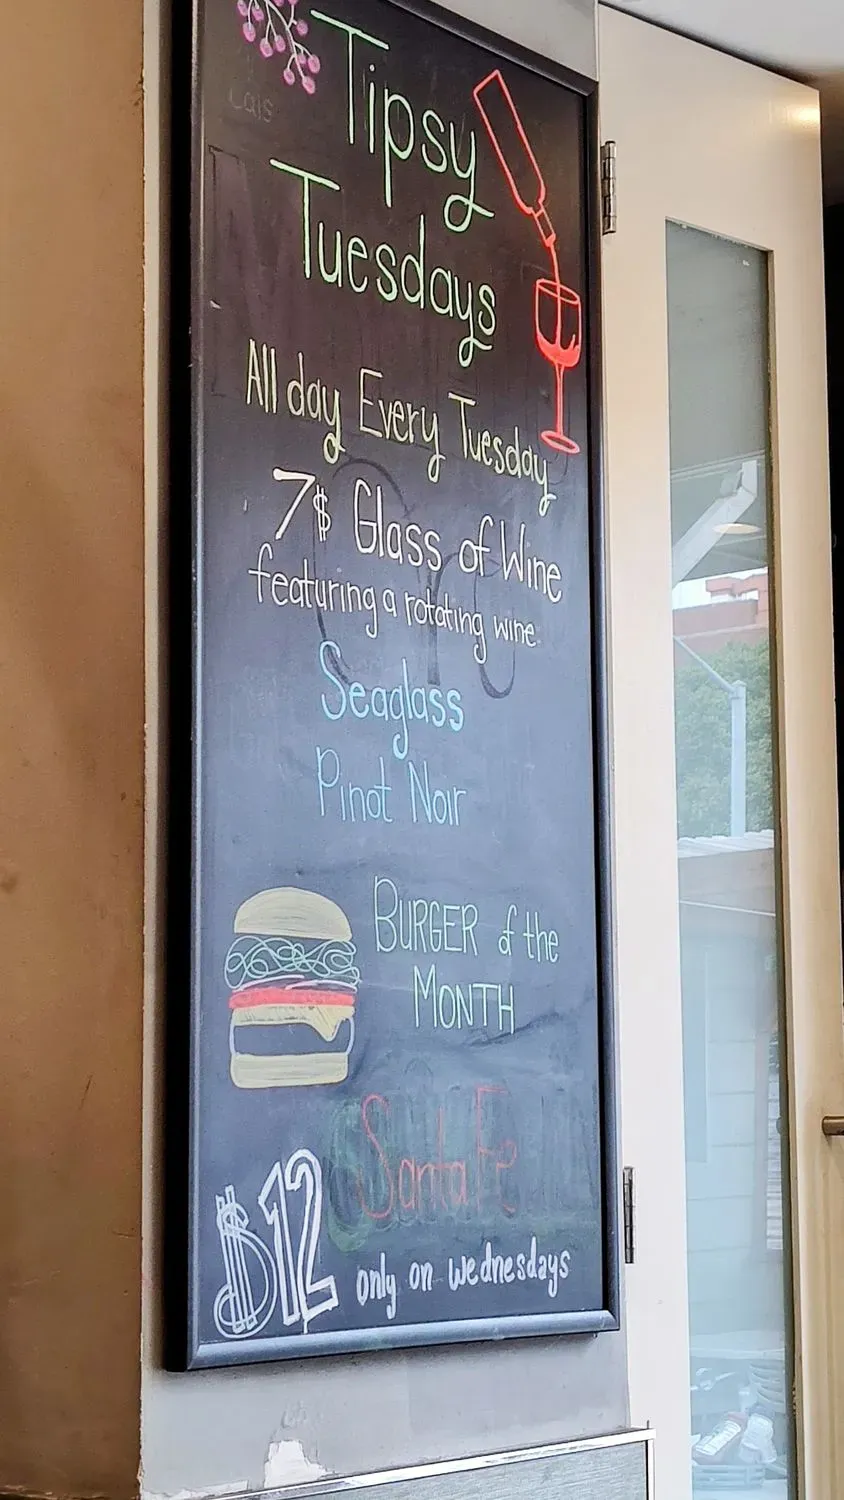 Tipsy
Tuesdays
All day Every Tuesday
7$ Glass of Wine
featuring a rotating wine
Seaglass
Pinot Noir
BURGER of the
MONTH
Santa Fe
$12 only on wednesdays